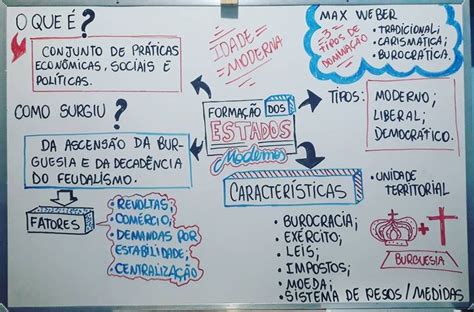 O QUE É?
CONJUNTO DE PRÁTICAS
ECONÔMICAS, SOCIAIS E
POLÍTICAS.
COMO SURGIU?
DA ASCENSÃO DA BUR-
GUESIA E DA DECADÊNCIA
DO FEUDALISMO.
FATORES
• REVOLTAS;
• COMÉRCIO;
• DEMANDAS POR
ESTABILIDADE;
• CENTRALIZAÇÃO
IDADE
MODERNA
FORMAÇÃO DOS
ESTADOS
Modernos
MAX WEBER
3
TIPOS DE
DOMINAÇÃO
• TRADICIONAL;
• CARISMÁTICA;
• BUROCRÁTICA.
TIPOS:
MODERNO;
LIBERAL;
DEMOCRÁTICO.
CARACTERÍSTICAS
• BUROCRACIA;
• EXÉRCITO;
• LEIS;
• IMPOSTOS;
• MOEDA;
• SISTEMA DE PESOS/MEDIDAS
• UNIDADE
TERRITORIAL
+
BURGUESIA